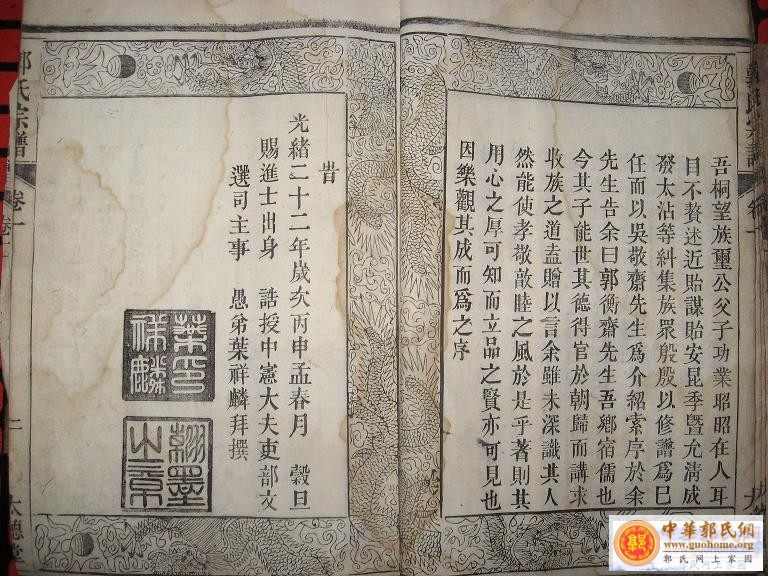 吾桐望族璽公父子功業昭昭在人耳
目不贅述近貽謀貽安昆季暨允清成
發太沾等糾集族眾殷殷以修譜爲己
任而以吳敬齋先生爲介紹索序於余
先生告余曰郭衡齋先生吾鄉宿儒也
今其子能世其德得官於朝歸而講求
收族之道盍贈以言余雖未深識其人
然能使孝敬敦睦之風於是乎著則其
用心之厚可知而立品之賢亦可見也
因樂觀其成而爲之序
旹
光緒二十二年歲次丙申孟春月 穀旦
賜進士出身 誥授中憲大夫吏部文
選司主事 愚弟葉祥麟拜撰
葉印祥麟
郭氏宗譜
卷一
二
大德堂
中華郭氏網
www.guohome.org
郭氏網上家園